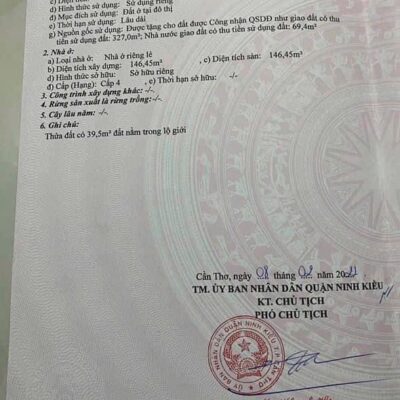 c) Hình thức sử dụng: Sử dụng riêng
d) Mục đích sử dụng: Đất ở tại đô thị
e) Thời hạn sử dụng: Lâu dài
g) Nguồn gốc sử dụng: Được tặng cho đất được Công nhận QSDĐ như giao đất có thu
tiền sử dụng đất: 327,0m²; Nhà nước giao đất có thu tiền sử dụng đất: 69,4m²
2. Nhà ở:
a) Loại nhà ở: Nhà ở riêng lẻ
b) Diện tích xây dựng: 146,45m² , c) Diện tích sàn: 146,45m²
d) Hình thức sở hữu: Sở hữu riêng
đ) Cấp (Hạng): Cấp 4 , e) Thời hạn sở hữu: -/-
3. Công trình xây dựng khác: -/-
4. Rừng sản xuất là rừng trồng: -/-
5. Cây lâu năm: -/-
6. Ghi chú:
Thửa đất có 39,5m² đất nằm trong lộ giới
Cần Thơ, ngày 08 tháng năm
TM. ỦY BAN NHÂN DÂN QUẬN NINH KIỀU
KT. CHỦ TỊCH
PHÓ CHỦ TỊCH
ỦY BAN NHÂN DÂN QUẬN NINH KIỀU T.P CẦN THƠ